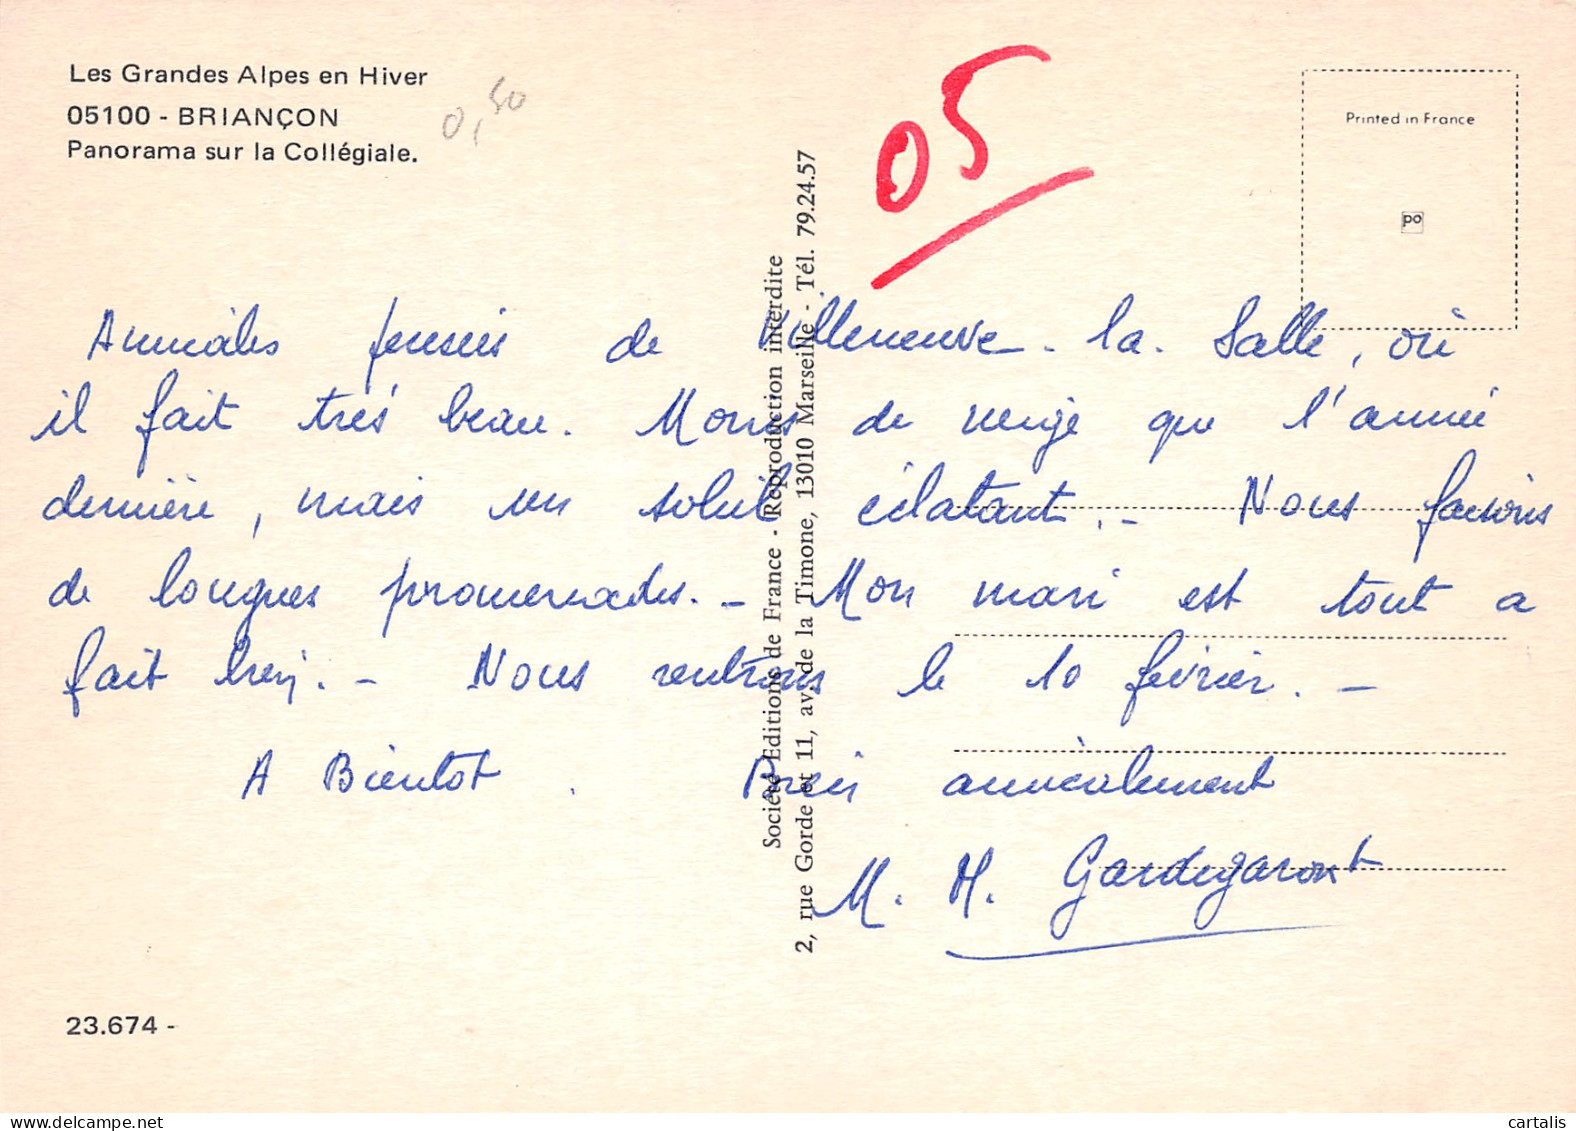 Les Grandes Alpes en Hiver
05100 - BRIANÇON
Panorama sur la Collégiale.
0,50
05
Printed in France
po
Société Editions de France - Reproduction interdite
2, rue Gorde et 11, av. de la Timone, 13010 Marseille - Tél. 79.24.57
Amicales pensées de Villeneuve-la-Salle, où
il fait très beau. Moins de neige que l'année
dernière, mais un soleil éclatant. - Nous faisons
de longues promenades. - Mon mari est tout a
fait bien. - Nous rentrons le 10 février. -
A Bientot. Bien amicalement
M. M.
23.674 -
delcampe.net
cartalis